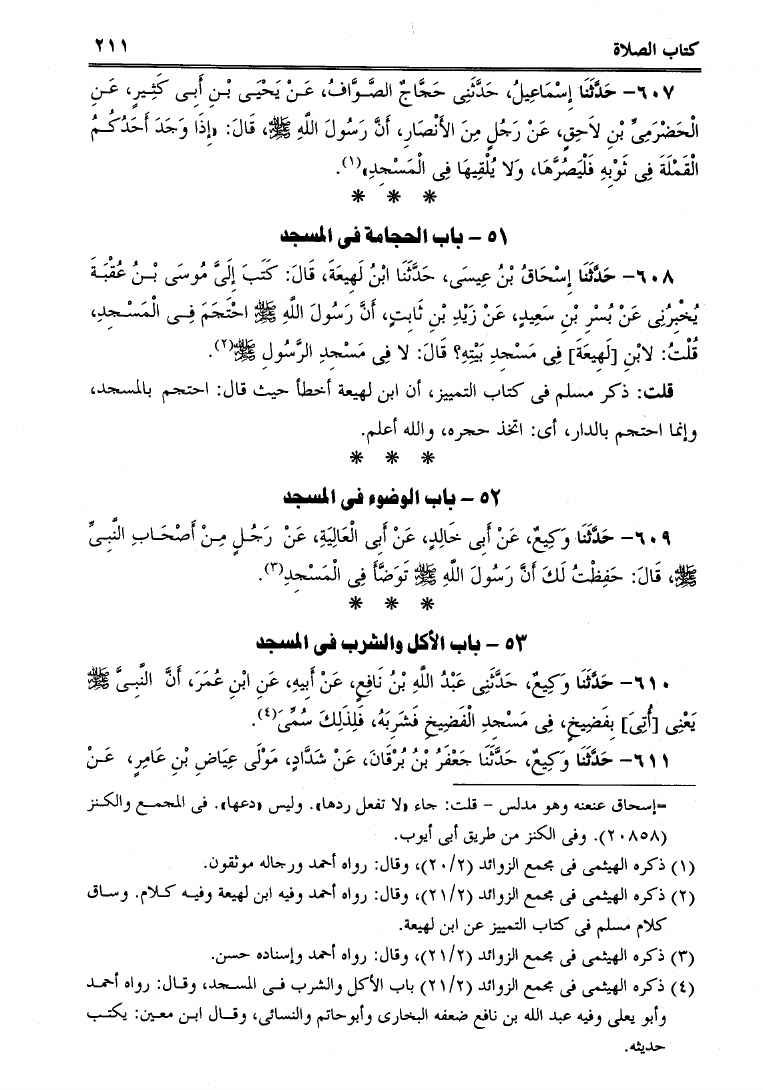 كتاب الصلاة ٢١١
٦٠٧- حَدَّثَنَا إِسْمَاعِيلُ، حَدَّثَنِى حَجَّاجٌ الصَّوَّافُ، عَنْ يَحْيَى بْنِ أَبِى كَثِيرٍ، عَنِ
الْحَضْرَمِىِّ بْنِ لاَحِقٍ، عَنْ رَجُلٍ مِنَ الأَنْصَارِ، أَنَّ رَسُولَ اللَّهِ ﷺ، قَالَ: «إِذَا وَجَدَ أَحَدُكُمُ
الْقَمْلَةَ فِى ثَوْبِهِ فَلْيَصُرَّهَا، وَلاَ يُلْقِيهَا فِى الْمَسْجِدِ»(١).
* * *
٥١ – باب الحجامة فى المسجد
٦٠٨- حَدَّثَنَا إِسْحَاقُ بْنُ عِيسَى، حَدَّثَنَا ابْنُ لَهِيعَةَ، قَالَ: كَتَبَ إِلَىَّ مُوسَى بْنُ عُقْبَةَ
يُخْبِرُنِى عَنْ بُسْرِ بْنِ سَعِيدٍ، عَنْ زَيْدِ بْنِ ثَابِتٍ، أَنَّ رَسُولَ اللَّهِ ﷺ احْتَجَمَ فِى الْمَسْجِدِ،
قُلْتُ: لابْنِ [لَهِيعَةَ] فِى مَسْجِدِ بَيْتِهِ؟ قَالَ: لا فِى مَسْجِدِ الرَّسُولِ ﷺ(٢).
قلت: ذكر مسلم فى كتاب التمييز، أن ابن لهيعة أخطأ حيث قال: احتجم بالمسجد،
وإنما احتجم بالدار، أى: اتخذ حجره، والله أعلم.
* * *
٥٢ – باب الوضوء فى المسجد
٦٠٩- حَدَّثَنَا وَكِيعٌ، عَنْ أَبِى خَالِدٍ، عَنْ أَبِى الْعَالِيَةِ، عَنْ رَجُلٍ مِنْ أَصْحَابِ النَّبِىِّ
ﷺ، قَالَ: حَفِظْتُ لَكَ أَنَّ رَسُولَ اللَّهِ ﷺ تَوَضَّأَ فِى الْمَسْجِدِ(٣).
* * *
٥٣ – باب الأكل والشرب فى المسجد
٦١٠- حَدَّثَنَا وَكِيعٌ، حَدَّثَنِى عَبْدُ اللَّهِ بْنُ نَافِعٍ، عَنْ أَبِيهِ، عَنِ ابْنِ عُمَرَ، أَنَّ النَّبِىَّ ﷺ
يَعْنِى [أُتِىَ] بِفَضِيخٍ، فِى مَسْجِدِ الْفَضِيخِ فَشَرِبَهُ، فَلِذَلِكَ سُمِّىَ(٤).
٦١١- حَدَّثَنَا وَكِيعٌ، حَدَّثَنَا جَعْفَرُ بْنُ بُرْقَانَ، عَنْ شَدَّادٍ، مَوْلَى عِيَاضِ بْنِ عَامِرٍ، عَنْ
=إسحاق عنعنه وهو مدلس – قلت: جاء «لا تفعل ردها». وليس «دعها». فى المجمع والكنز
(٢٠٨٥٨). وفى الكنز من طريق أبى أيوب.
(١) ذكره الهيثمى فى مجمع الزوائد (٢٠/٢)، وقال: رواه أحمد ورجاله موثقون.
(٢) ذكره الهيثمى فى مجمع الزوائد (٢١/٢)، وقال: رواه أحمد وفيه ابن لهيعة وفيه كلام. وساق
كلام مسلم فى كتاب التمييز عن ابن لهيعة.
(٣) ذكره الهيثمى فى مجمع الزوائد (٢١/٢)، وقال: رواه أحمد وإسناده حسن.
(٤) ذكره الهيثمى فى مجمع الزوائد (٢١/٢) باب الأكل والشرب فى المسجد، وقال: رواه أحمد
وأبو يعلى وفيه عبد الله بن نافع ضعفه البخارى وأبو حاتم والنسائى، وقال ابن معين: يكتب
حديثه.